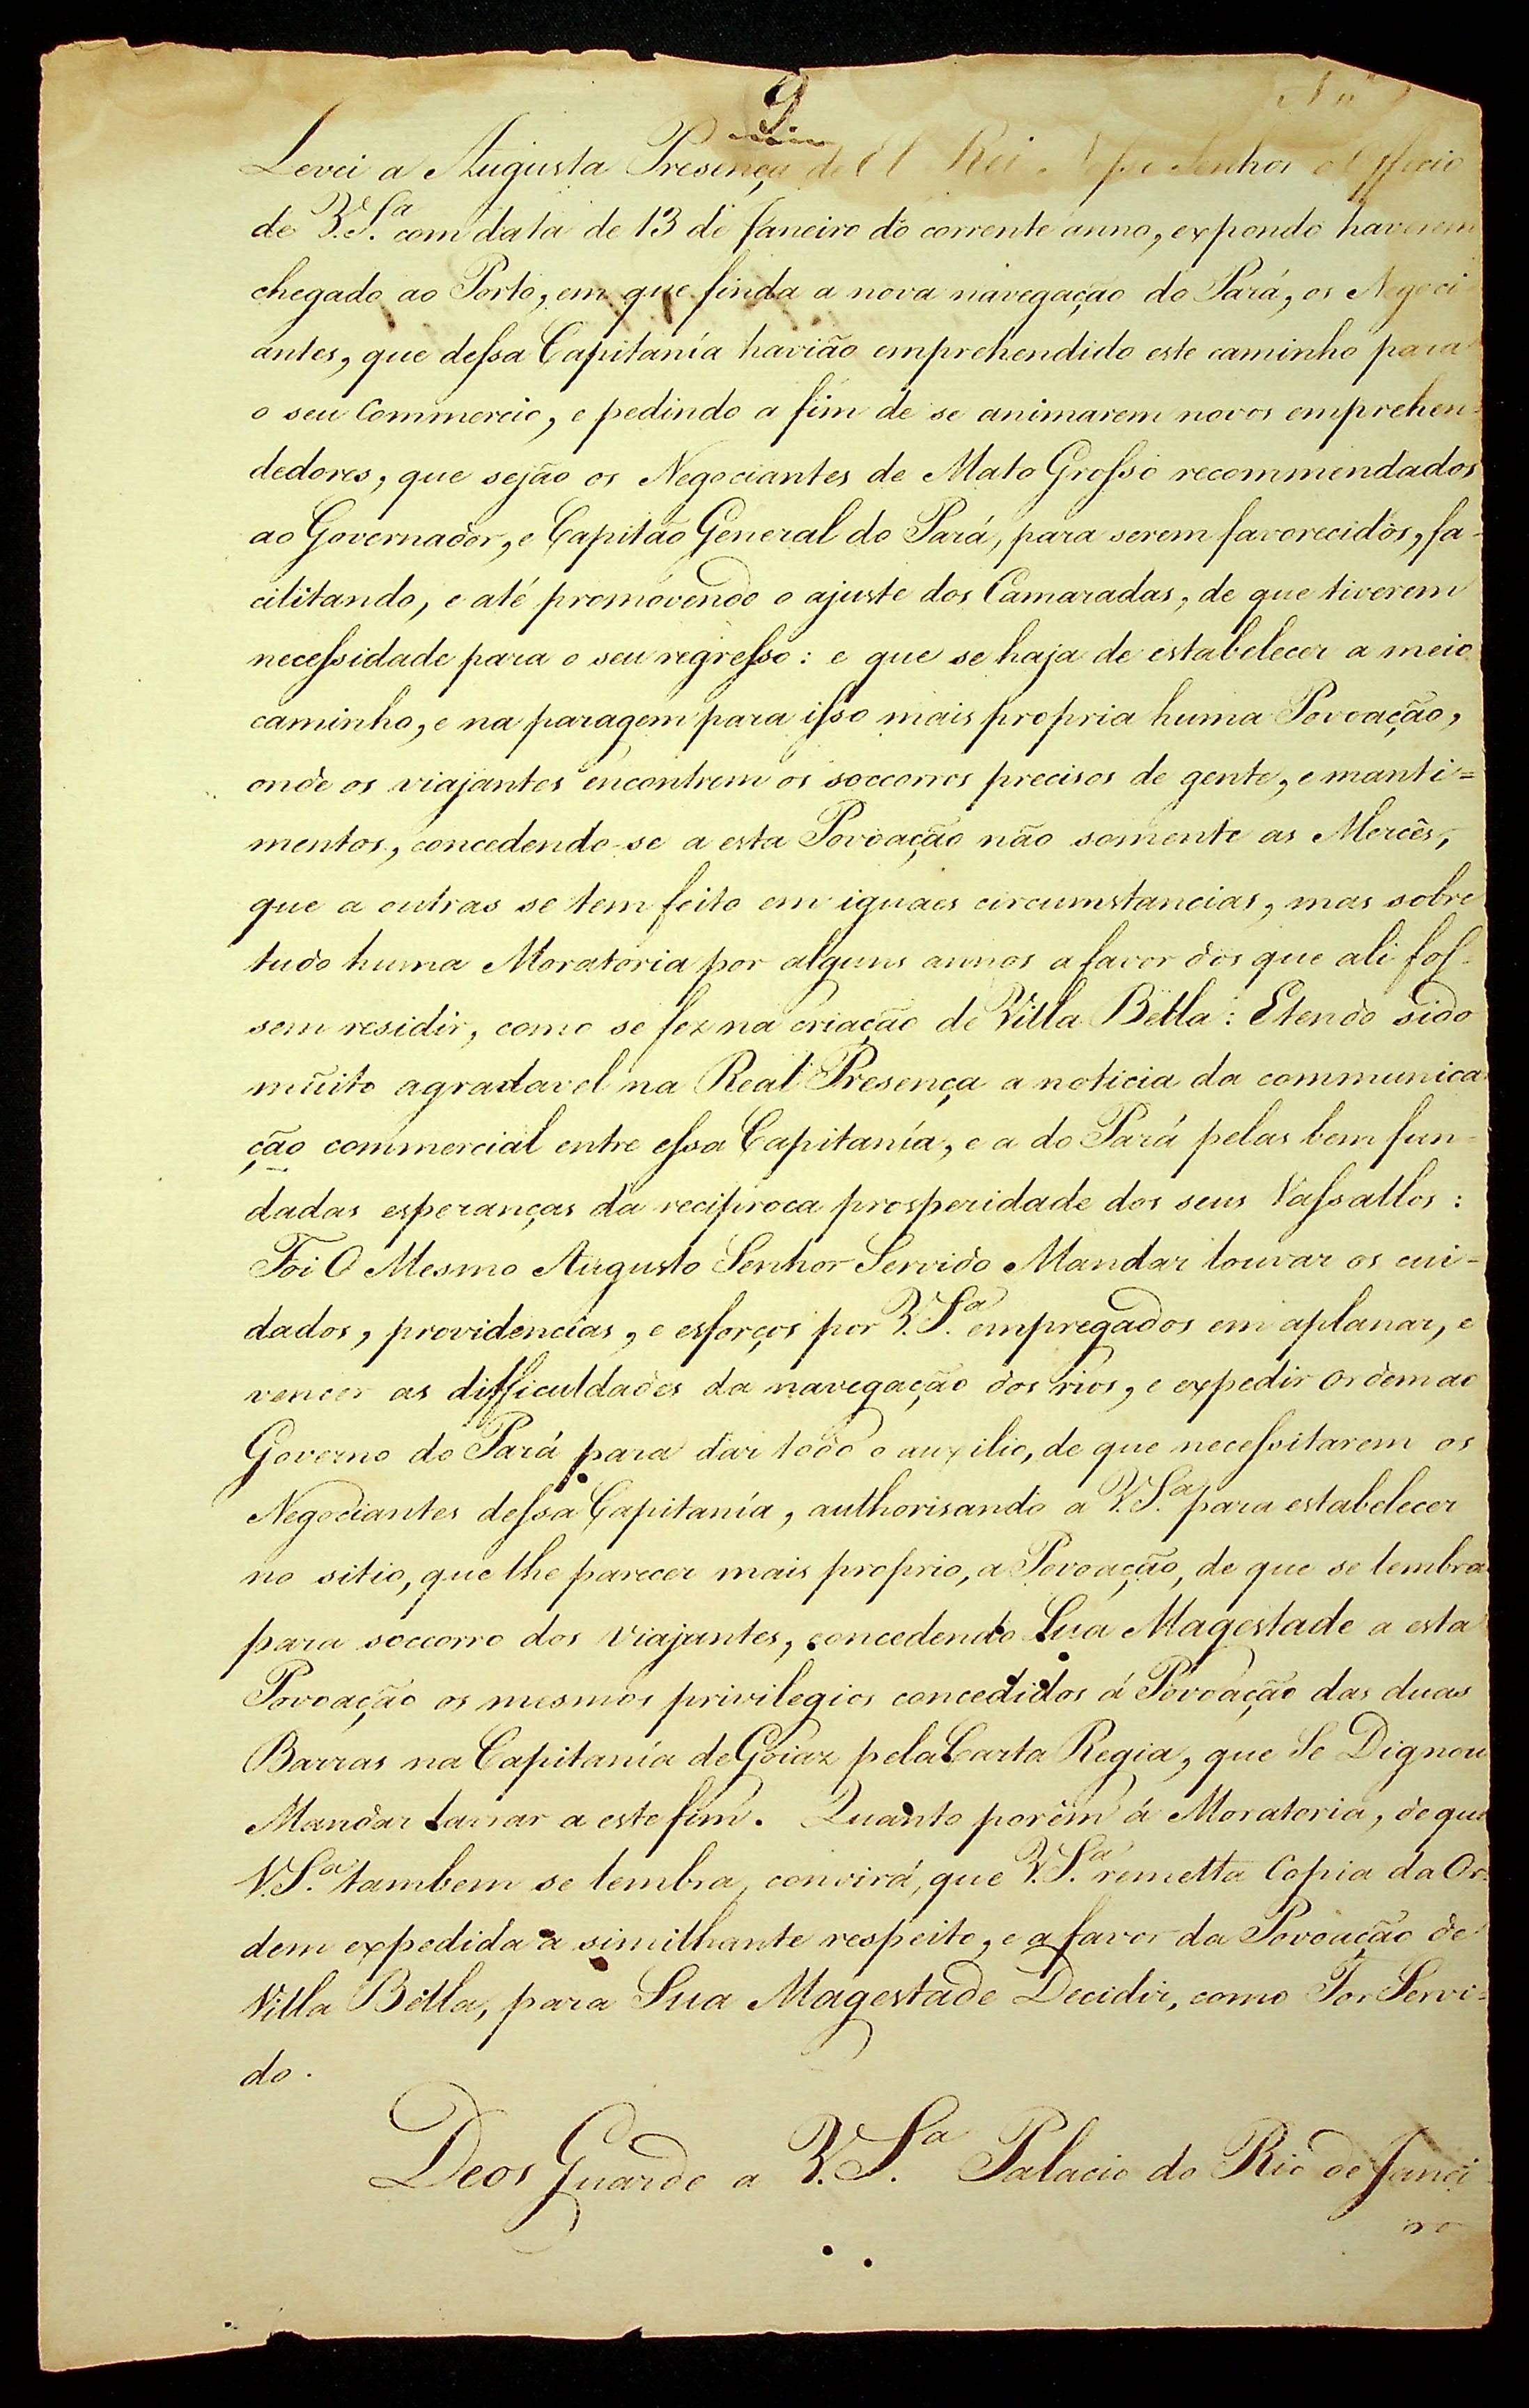 9
Nº
Levei a Augusta Presença de El Rei Nosso Senhor o Officio
de V.S.ª com data de 13 de Janeiro do corrente anno, expondo haverem
chegado ao Porto, em que finda a nova navegação do Pará, os Negoci
antes, que dessa Capitanía havião emprehendido este caminho para
o seu Commercio, e pedindo a fim de se animarem novos emprehen=
dedores, que sejão os Negociantes de Mato Grosso recommendados
ao Governador, e Capitão General do Pará, para serem favorecidos, fa-
cilitando, e até promovendo o ajuste dos Camaradas, de que tiverem
necessidade para o seu regresso: e que se haja de estabelecer a meio
caminho, e na paragem para isso mais propria huma Povoação,
onde os viajantes encontrem os soccorros precisos de gente, e manti=
mentos, concedendo-se a esta Povoação não somente as Mercês,
que a outras se tem feito em iguaes circumstancias, mas sobre
tudo huma Moratoria por alguns annos a favor dos que ali fos-
sem residir, como se fez na criação de Villa Bella: E tendo sido
muito agradavel na Real Presença a noticia da communica
ção commercial entre essa Capitanía, e a do Pará pelas bem fun=
dadas esperanças da reciproca prosperidade dos seus Vassallos:
Foi O Mesmo Augusto Senhor Servido Mandar louvar os cui-
dados, providencias, e esforços por V.S.ª empregados em aplanar, e
vencer as difficuldades da navegação dos rios, e expedir ordem ao
Governo do Pará para dar todo o auxilio, de que necessitarem os
Negociantes dessa Capitanía, authorisando a V.S.ª para estabelecer
no sitio, que lhe parecer mais proprio, a Povoação, de que se lembra
para soccorro dos Viajantes, concedendo Sua Magestade a esta
Povoação os mesmos privilegios concedidos á Povoação das duas
Barras na Capitanía de Goiaz pela Carta Regia, que Se Dignou
Mandar Lavrar a este fim. Quanto porêm á Moratoria, de que
V.S.ª tambem se lembra, convirá, que V.S.ª remetta Copia da Or=
dem expedida a similhante respeito, e a favor da Povoação de
Villa Bella, para Sua Magestade Decidir, como For Servi=
do.
Deos Guarde a V.S.ª Palacio do Rio de Janei
ro